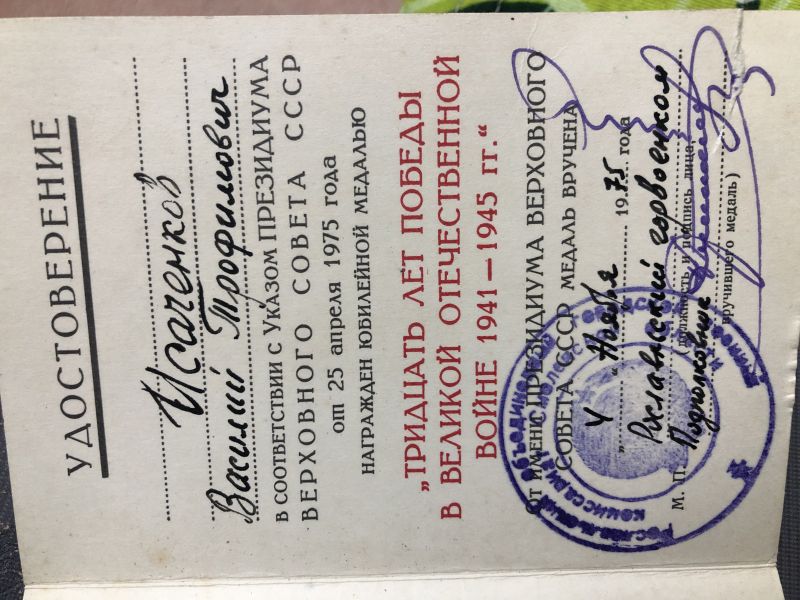 УДОСТОВЕРЕНИЕ
Исаченков
Василий Трофимович
В СООТВЕТСТВИИ С УКАЗОМ ПРЕЗИДИУМА
ВЕРХОВНОГО СОВЕТА СССР
от 25 апреля 1975 года
НАГРАЖДЕН ЮБИЛЕЙНОЙ МЕДАЛЬЮ
„ТРИДЦАТЬ ЛЕТ ПОБЕДЫ
В ВЕЛИКОЙ ОТЕЧЕСТВЕННОЙ
ВОЙНЕ 1941—1945 гг.“
ОТ ИМЕНИ ПРЕЗИДИУМА ВЕРХОВНОГО
СОВЕТА СССР МЕДАЛЬ ВРУЧЕНА
„ 4 “ Ноября 1975 года
Рославльский горвоенком
М. П. (должность и подпись лица,
Подполковник
вручившего медаль)